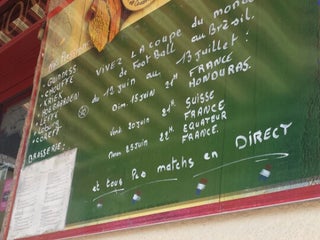 VIVEZ LA COUPE du MONDE
de FOOT BALL au BRÉSIL.
du 12 JUIN au 13 juillet !
Dim. 15 JUIN 21H FRANCE
HONDURAS.
Vend. 20 JUIN 21H SUISSE
FRANCE
Merc. 25 JUIN 22H. EQUATEUR
FRANCE.
et tous les matchs en DIRECT
- GUINNESS
- CHOUFFE
- KRIEK
- HOEGAARDEN
- LEFFE
BRASSERIE: